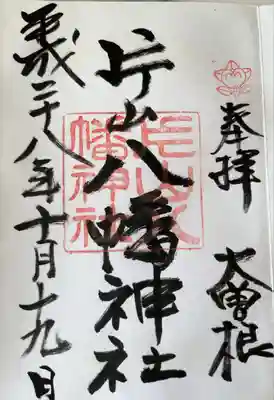 奉拝
大曽根
片山八幡神社
片山八幡神社
平成二十八年十月十九日